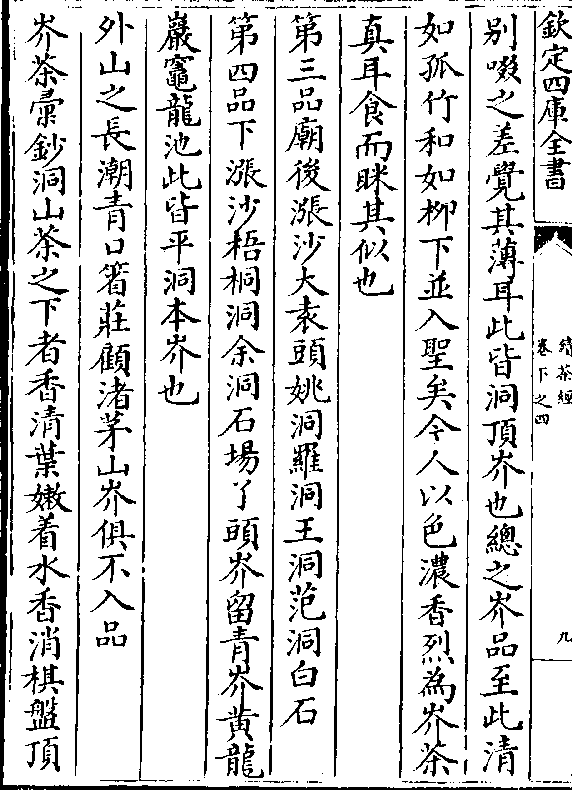 欽定四庫全書
續茶經
卷下之四
九
別啜之差覺其薄耳此皆洞頂岕也總之岕品至此清
如孤竹和如柳下並入聖矣今人以色濃香烈為岕茶
真耳食而眯其似也
第三品廟後漲沙大袁頭姚洞羅洞王洞范洞白石
第四品下漲沙梧桐洞余洞石場丫頭岕留青岕黄龍
巖竈龍池此皆平洞本岕也
外山之長潮青口箵莊顧渚茅山岕俱不入品
岕茶彚鈔洞山茶之下者香清葉嫩着水香消棋盤頂